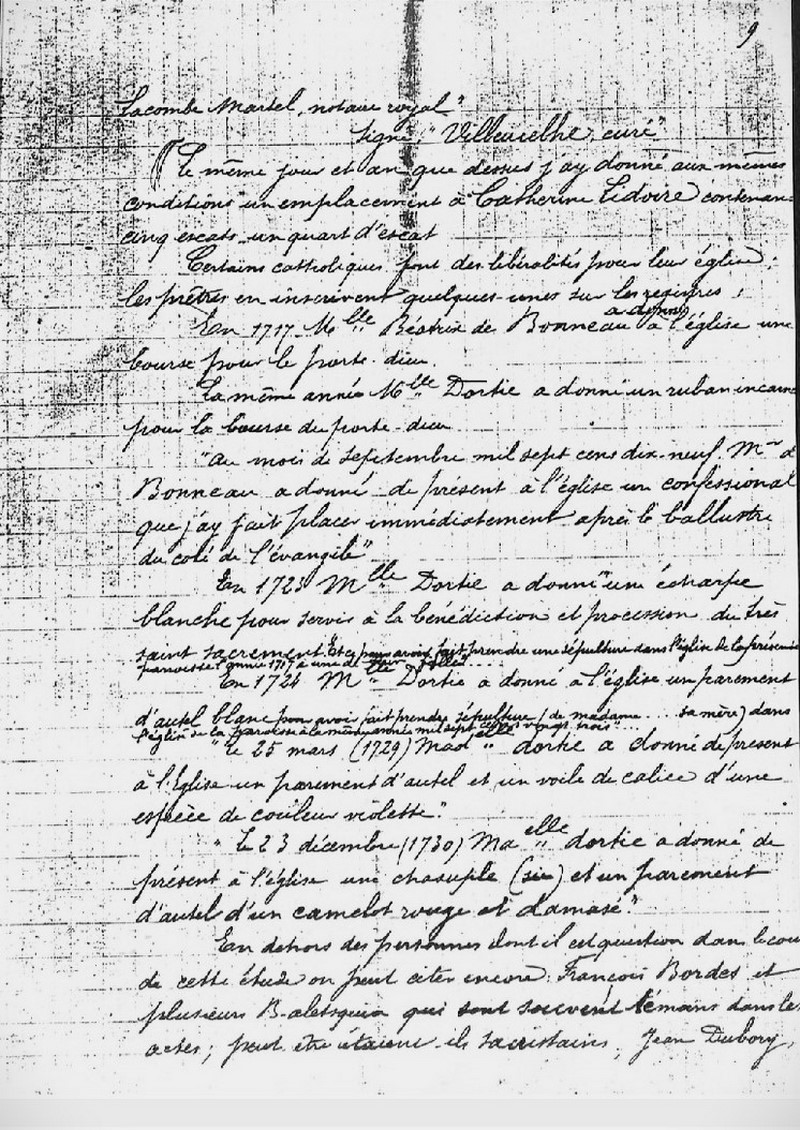 9
Lacombe Martel, notaire royal"
Signé "Villeucelhe, curé"
Le même jour et an que dessus j'ay donné aux mêmes
conditions un emplacement à Catherine Lidoire contenan
cinq escats un quart d'escat
Certains catholiques font des libéralités pour leur église;
les prêtres en inscrivent quelques-unes sur les registres;
En 1717 Mlle Béatrix de Bonneau a donné à l'église une
bourse pour le porte-dieu.
La même année Mlle Dortie a donné un ruban incarn
pour la bourse du porte-dieu
"Au mois de septembre mil sept cens dix-neuf Mr d
Bonneau a donné de présent à l'église un confessional
que j'ay fait placer immédiatement après le ballustre
du coté de l'évangile"
En 1723 Mlle Dortie a donné "une écharpe
blanche pour servir à la bénédiction et procession du très
saint sacrement. Et pour avoir fait prendre une sépulture dans l'église de la présente
paroisse l'année 1717 à une de
En 1724 Mlle Dortie a donné à l'église un parement
d'autel blanc pour avoir fait prendre sépulture (de madame .... sa mère) dans
l'église de la paroisse la même année mil sept cens vingt trois"...
"le 25 mars (1729) Madelle dortie a donné de présent
à l'Eglise un parement d'autel et un voile de calice d'une
espèce de couleur violette".
"Le 23 décembre (1730) Maelle dortie a donné de
présent à l'église une chasuple (sic) et un parement
d'autel d'un camelot rouge et damasé".
En dehors des personnes dont il est question dans le cou
de cette étude on peut citer encore: François Bordes et
plusieurs qui sont souvent témoins dans les
actes; peut être étaient-ils sacristains; Jean Dubory,